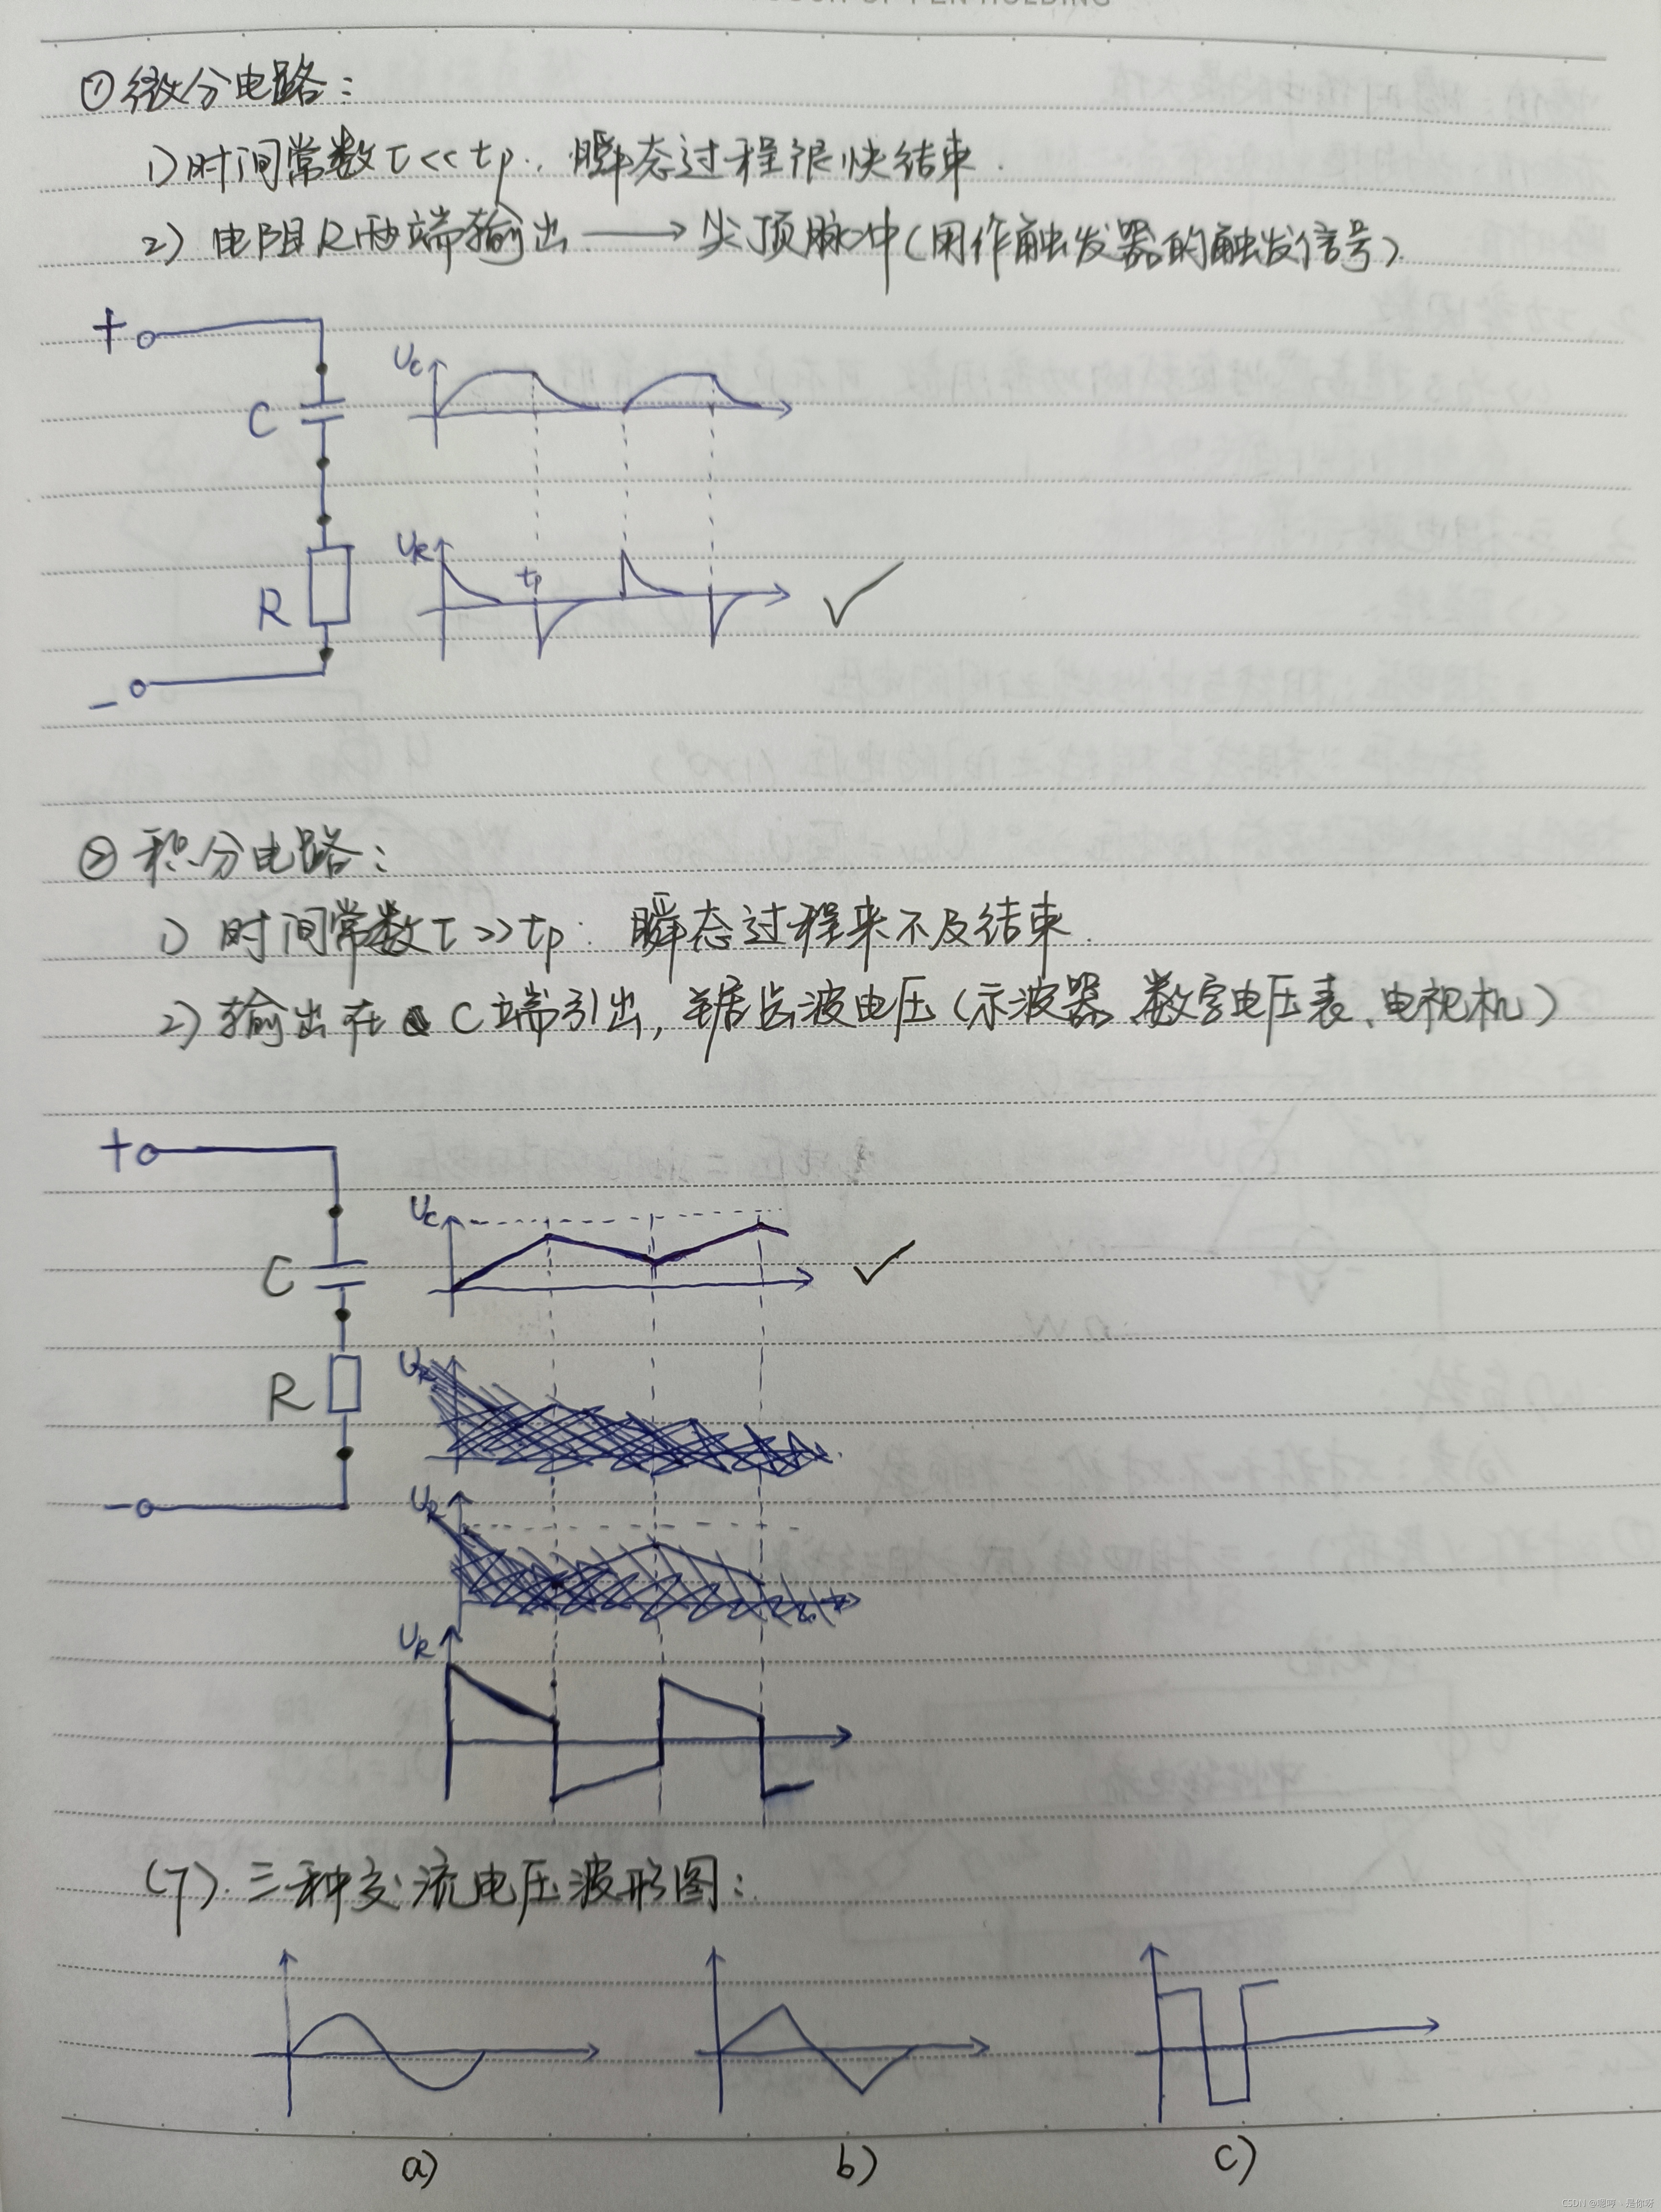 ①微分电路：
1)时间常数τ<<tp. 瞬态过程很快结束.
2) 电阻R两端输出 → 尖顶脉冲(用作触发器的触发信号).
+
Uc
C
UR
tp
R
-
②积分电路：
1) 时间常数τ>>tp. 瞬态过程来不及结束.
2) 输出在 C端引出, 锯齿波电压(示波器、数字电压表、电视机)
+
Uc
C
UR
R
-
UR
UR
(7).三种交流电压波形图：
a)
b)
c)
CSDN @嗯哼、是你呀